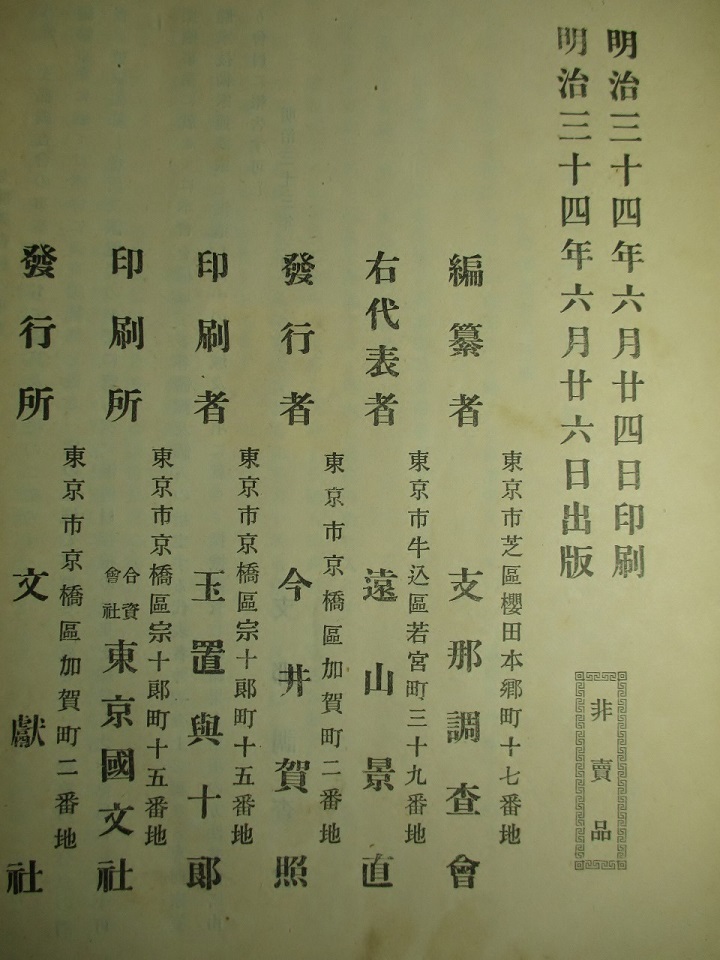 明治三十四年六月廿四日印刷
明治三十四年六月廿六日出版
非賣品
東京市芝區櫻田本鄕町十七番地
編纂者 支那調査會
東京市牛込區若宮町三十九番地
右代表者 遠山景直
東京市京橋區加賀町二番地
發行者 今井賀照
東京市京橋區宗十郞町十五番地
印刷者 玉置與十郞
東京市京橋區宗十郞町十五番地
印刷所 合資會社 東京國文社
東京市京橋區加賀町二番地
發行所 文獻社